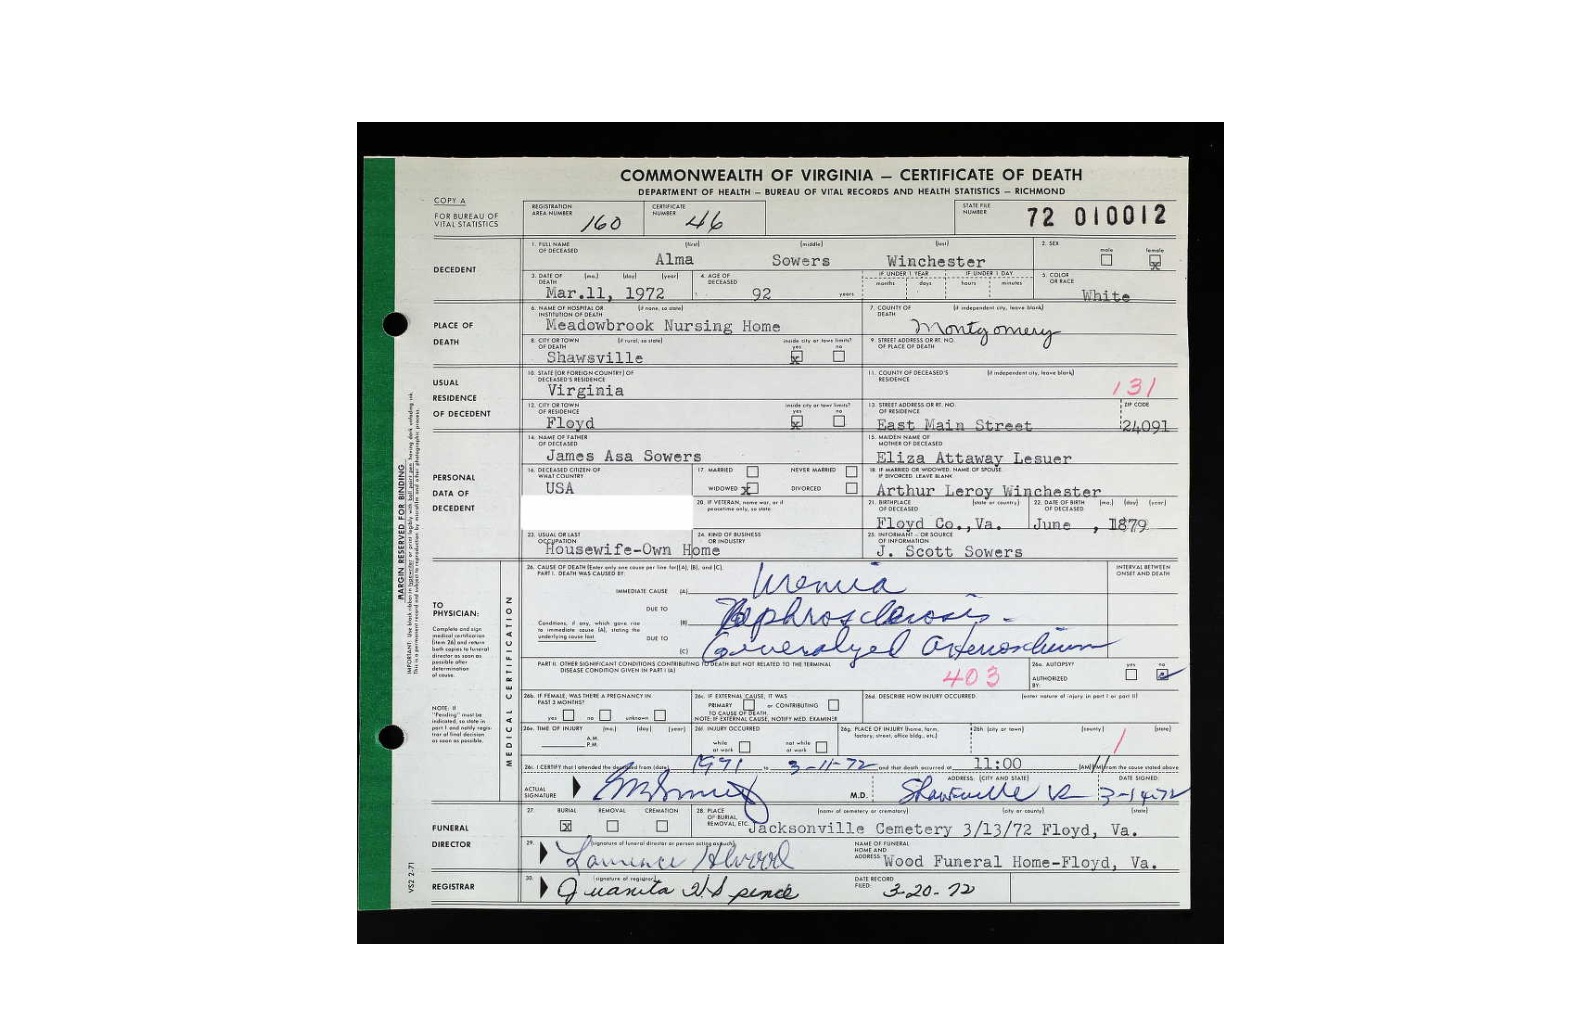 COMMONWEALTH OF VIRGINIA — CERTIFICATE OF DEATH
DEPARTMENT OF HEALTH — BUREAU OF VITAL RECORDS AND HEALTH STATISTICS — RICHMOND
COPY A
FOR BUREAU OF VITAL STATISTICS
REGISTRATION AREA NUMBER 160
CERTIFICATE NUMBER 46
STATE FILE NUMBER 72 010012
DECEDENT
1. FULL NAME OF DECEASED (first) (middle) (last)
Alma Sowers Winchester
2. SEX male female x
3. DATE OF DEATH (mo.) (day) (year)
Mar.11, 1972
4. AGE OF DECEASED 92 years
IF UNDER 1 YEAR months days IF UNDER 1 DAY hours minutes
5. COLOR OR RACE White
PLACE OF DEATH
6. NAME OF HOSPITAL OR INSTITUTION OF DEATH (if none, so state)
Meadowbrook Nursing Home
7. COUNTY OF DEATH (if independent city, leave blank)
Montgomery
8. CITY OR TOWN OF DEATH (if rural, so state) inside city or town limits? yes x no
Shawsville
9. STREET ADDRESS OR RT. NO. OF PLACE OF DEATH
USUAL RESIDENCE OF DECEDENT
10. STATE (OR FOREIGN COUNTRY) OF DECEASED'S RESIDENCE
Virginia
11. COUNTY OF DECEASED'S RESIDENCE (if independent city, leave blank)
131
12. CITY OR TOWN OF RESIDENCE inside city or town limits? yes x no
Floyd
13. STREET ADDRESS OR RT. NO. OF RESIDENCE ZIP CODE
East Main Street 24091
PERSONAL DATA OF DECEDENT
14. NAME OF FATHER OF DECEASED
James Asa Sowers
15. MAIDEN NAME OF MOTHER OF DECEASED
Eliza Attaway Lesuer
16. DECEASED CITIZEN OF WHAT COUNTRY
USA
17. MARRIED NEVER MARRIED
WIDOWED x DIVORCED
18. IF MARRIED OR WIDOWED, NAME OF SPOUSE IF DIVORCED, LEAVE BLANK
Arthur Leroy Winchester
20. IF VETERAN, name war, or if peacetime only, so state
21. BIRTHPLACE OF DECEASED (state or country)
Floyd Co.,Va.
22. DATE OF BIRTH OF DECEASED (mo.) (day) (year)
June , 1879
23. USUAL OR LAST OCCUPATION
Housewife-Own Home
24. KIND OF BUSINESS OR INDUSTRY
25. INFORMANT - OR SOURCE OF INFORMATION
J. Scott Sowers
MARGIN RESERVED FOR BINDING
MEDICAL CERTIFICATION
TO PHYSICIAN:
Complete and sign medical certification (item 26) and return both copies to funeral director as soon as possible after determination of cause.
NOTE: If "Pending" must be indicated, so state in part I and notify registrar of final decision as soon as possible.
26. CAUSE OF DEATH (Enter only one cause per line for (A), (B), and (C).
PART I. DEATH WAS CAUSED BY:
INTERVAL BETWEEN ONSET AND DEATH
IMMEDIATE CAUSE (A) Uremia
DUE TO (B) Nephrosclerosis -
Conditions, if any, which gave rise to immediate cause (A), stating the underlying cause last
DUE TO (C) Generalyzed
PART II. OTHER SIGNIFICANT CONDITIONS CONTRIBUTING TO DEATH BUT NOT RELATED TO THE TERMINAL DISEASE CONDITION GIVEN IN PART I (A)
403
26a. AUTOPSY? yes no
AUTHORIZED BY:
26b. IF FEMALE, WAS THERE A PREGNANCY IN PAST 3 MONTHS?
yes no unknown
26c. IF EXTERNAL CAUSE, IT WAS
PRIMARY or CONTRIBUTING
TO CAUSE OF DEATH.
NOTE: IF EXTERNAL CAUSE, NOTIFY MED. EXAMINER
26d. DESCRIBE HOW INJURY OCCURRED. (enter nature of injury in part I or part II)
26e. TIME OF INJURY (mo.) (day) (year)
A.M.
P.M.
26f. INJURY OCCURRED
while at work not while at work
26g. PLACE OF INJURY (home, farm, factory, street, office bldg., etc.)
26h. (city or town) (county) (state)
1
I CERTIFY that I attended the deceased from (date) 1971 to 3-11-72 and that death occurred at 11:00 from the cause stated above
ACTUAL SIGNATURE M.D.
ADDRESS: (CITY AND STATE) DATE SIGNED:
Shawsville Va 3-14-72
FUNERAL DIRECTOR
27. BURIAL x REMOVAL CREMATION
28. PLACE OF BURIAL, REMOVAL, ETC. (name of cemetery or crematory) (city or county) (state)
Jacksonville Cemetery 3/13/72 Floyd, Va.
29. (signature of funeral director or person acting as such)
NAME OF FUNERAL HOME AND ADDRESS: Wood Funeral Home-Floyd, Va.
REGISTRAR
30. (signature of registrar)
Juanita H. Spence
DATE RECORD FILED: 3-20-72
VS2 2-71